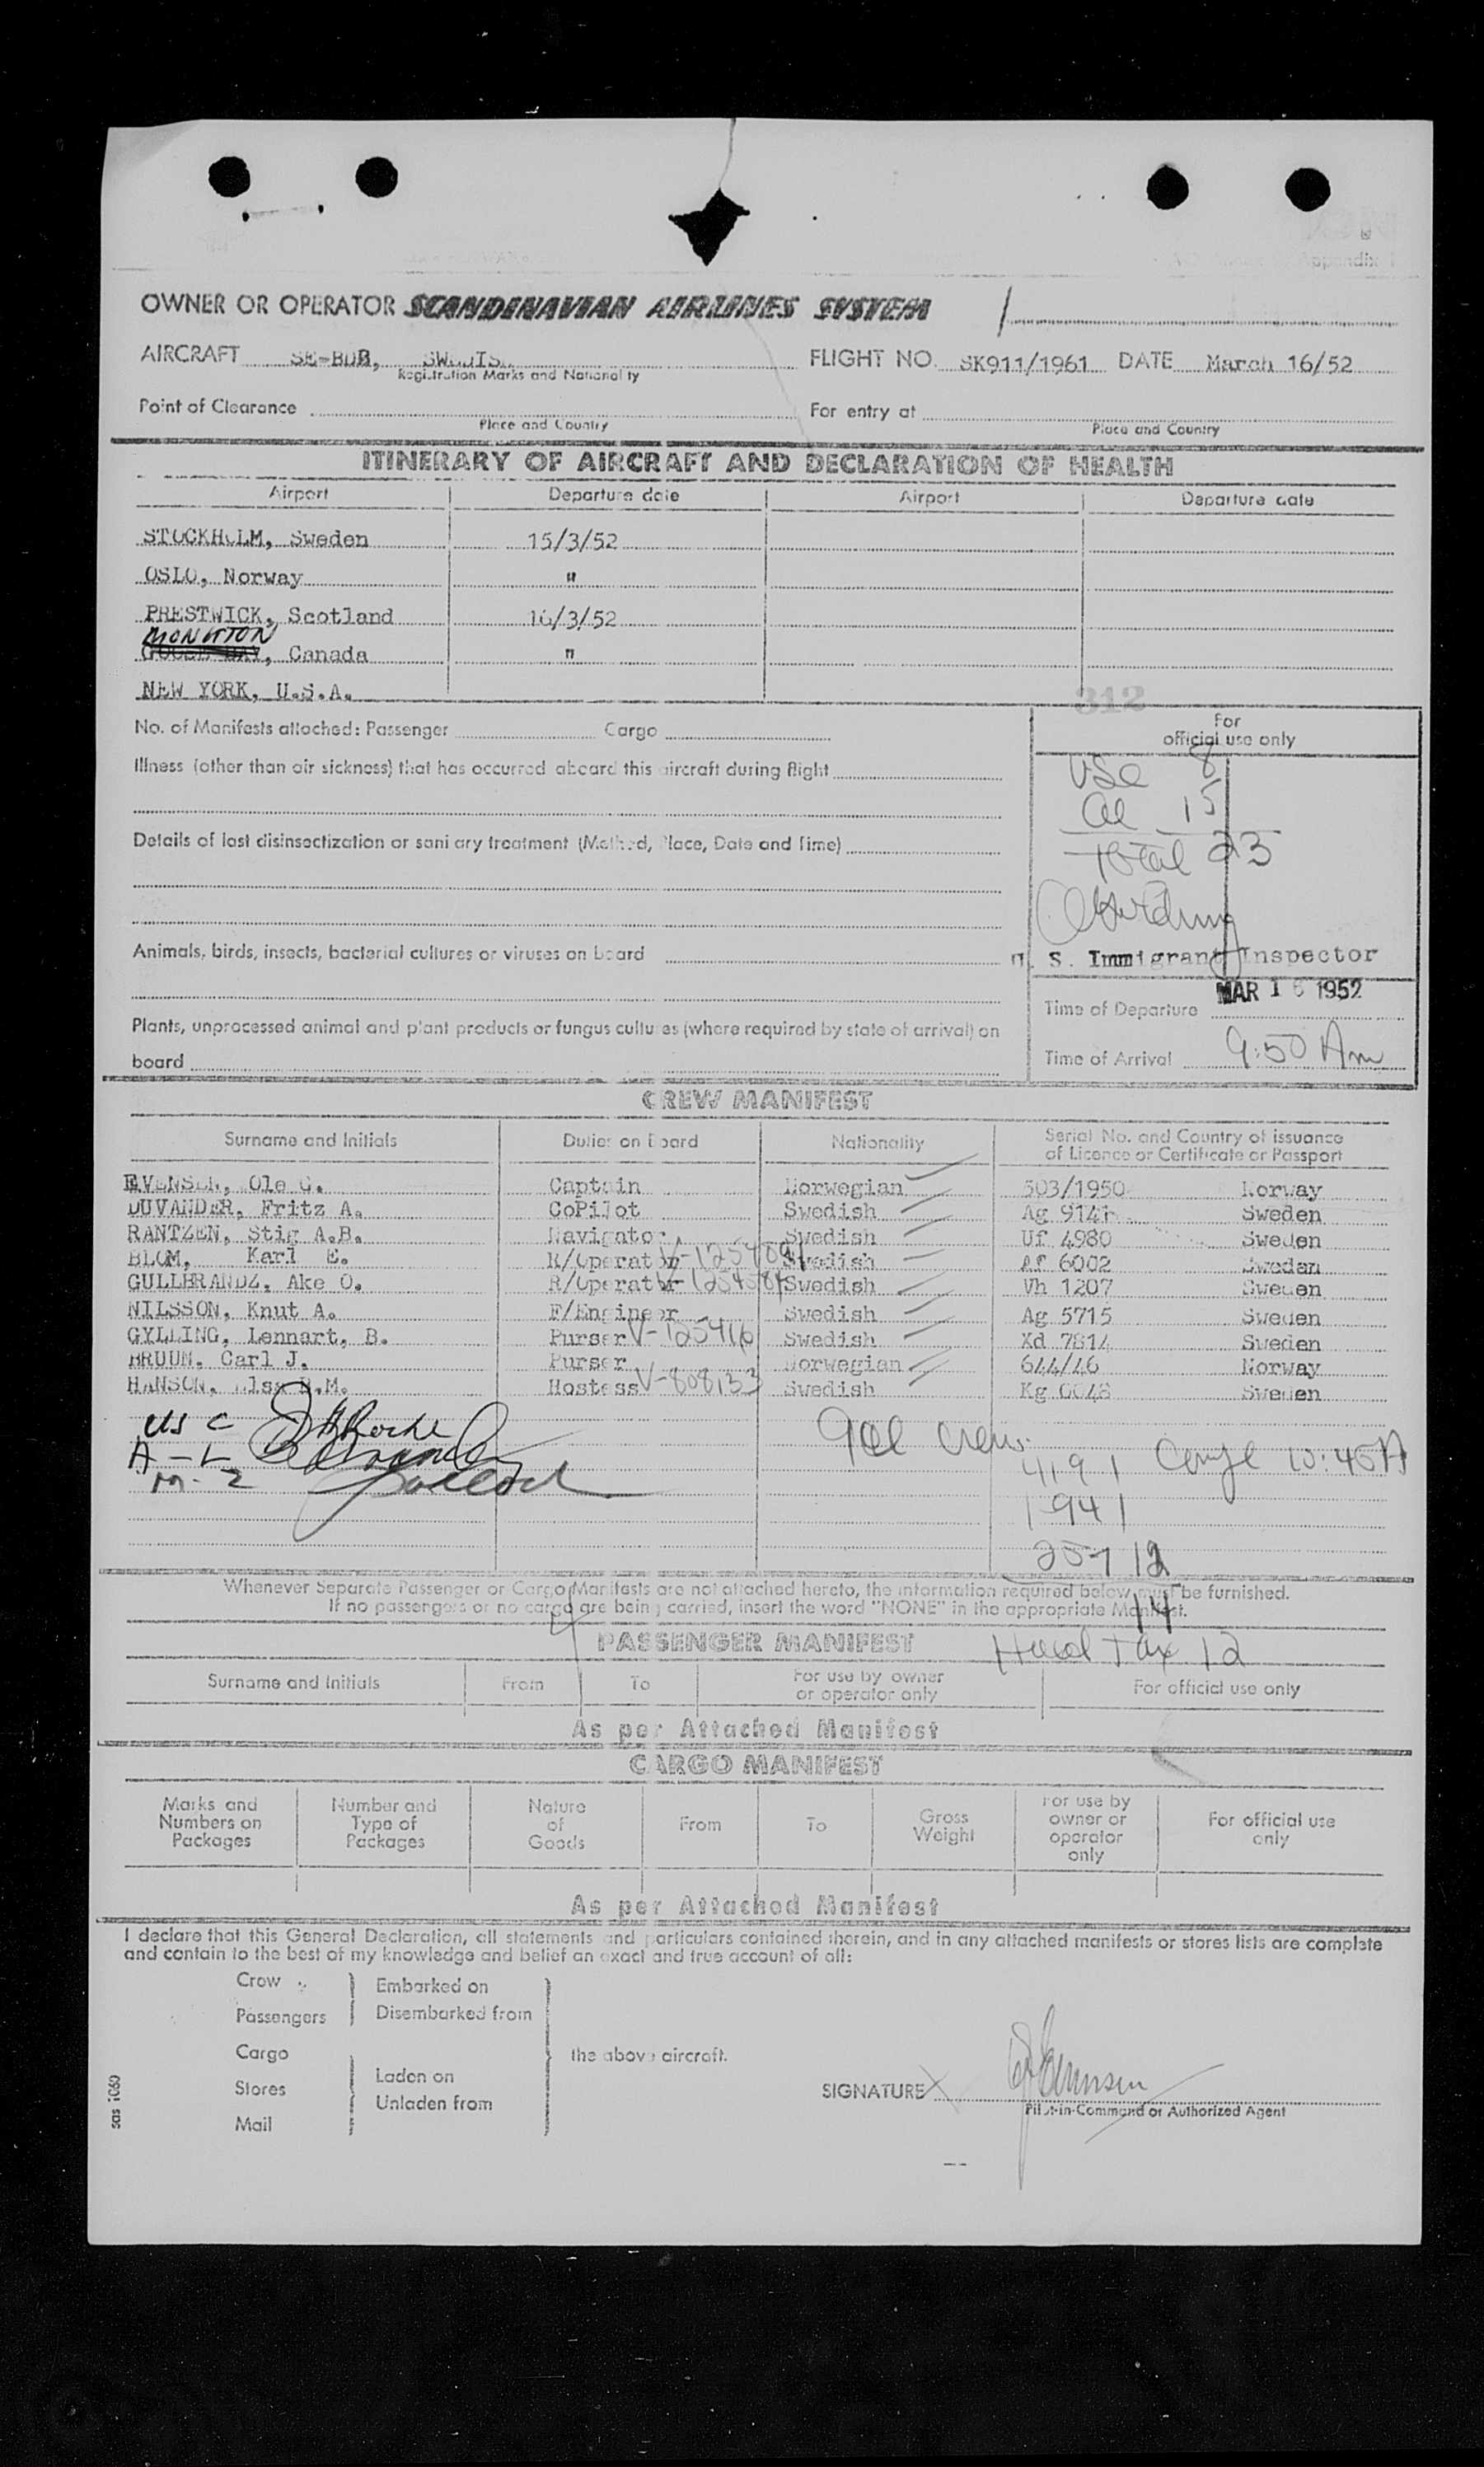 OWNER OR OPERATOR SCANDINAVIAN AIRLINES SYSTEM
AIRCRAFT SE-BDB, SWEDISH FLIGHT NO. SK911/1961 DATE March 16/52
Registration Marks and Nationality
Point of Clearance For entry at
Place and Country Place and Country
ITINERARY OF AIRCRAFT AND DECLARATION OF HEALTH
Airport Departure date Airport Departure date
STOCKHOLM, Sweden 15/3/52
OSLO, Norway "
PRESTWICK, Scotland 16/3/52
MONCTON
GOOSE BAY, Canada "
NEW YORK, U.S.A.
312
No. of Manifests attached: Passenger Cargo
For
official use only
Illness (other than air sickness) that has occurred aboard this aircraft during flight
USC 8
al 15
Details of last disinsectization or sanitary treatment (Method, Place, Date and Time)
Total 23
Animals, birds, insects, bacterial cultures or viruses on board
U. S. Immigrant Inspector
MAR 16 1952
Time of Departure
Plants, unprocessed animal and plant products or fungus cultures (where required by state of arrival) on
board
Time of Arrival 9:50 Am
CREW MANIFEST
Surname and Initials Duties on Board Nationality Serial No. and Country of issuance
of Licence or Certificate or Passport
EVENSEN, Ole G. Captain Norwegian 503/1950 Norway
DUVANDER, Fritz A. CoPilot Swedish Ag 9141 Sweden
RANTZEN, Stig A.B. Navigator Swedish Uf 4980 Sweden
BLOM, Karl E. R/Operator Swedish Af 6002 Sweden
GULLBRANDZ, Ake O. R/Operator Swedish Vh 1207 Sweden
NILSSON, Knut A. F/Engineer Swedish Ag 5715 Sweden
GYLLING, Lennart, B. Purser V-125416 Swedish Xd 7814 Sweden
BRUUN, Carl J. Purser Norwegian 644/46 Norway
HANSON, Elsa B.M. Hostess V-808133 Swedish Kg 0048 Sweden
US C
A - L
M - 2
9 al crew
4191 10:45A
1941
257 12
14
Whenever Separate Passenger or Cargo Manifests are not attached hereto, the information required below must be furnished.
If no passengers or no cargo are being carried, insert the word "NONE" in the appropriate Manifest.
PASSENGER MANIFEST
Head Tax 12
Surname and Initials From To For use by owner
or operator only For official use only
As per Attached Manifest
CARGO MANIFEST
Marks and
Numbers on
Packages Number and
Type of
Packages Nature
of
Goods From To Gross
Weight For use by
owner or
operator
only For official use
only
As per Attached Manifest
I declare that this General Declaration, all statements and particulars contained therein, and in any attached manifests or stores lists are complete
and contain to the best of my knowledge and belief an exact and true account of all:
Crew Embarked on
Passengers Disembarked from
Cargo the above aircraft.
Stores Laden on
Unladen from
Mail
SIGNATURE
Pilot-in-Command or Authorized Agent
sas 1060